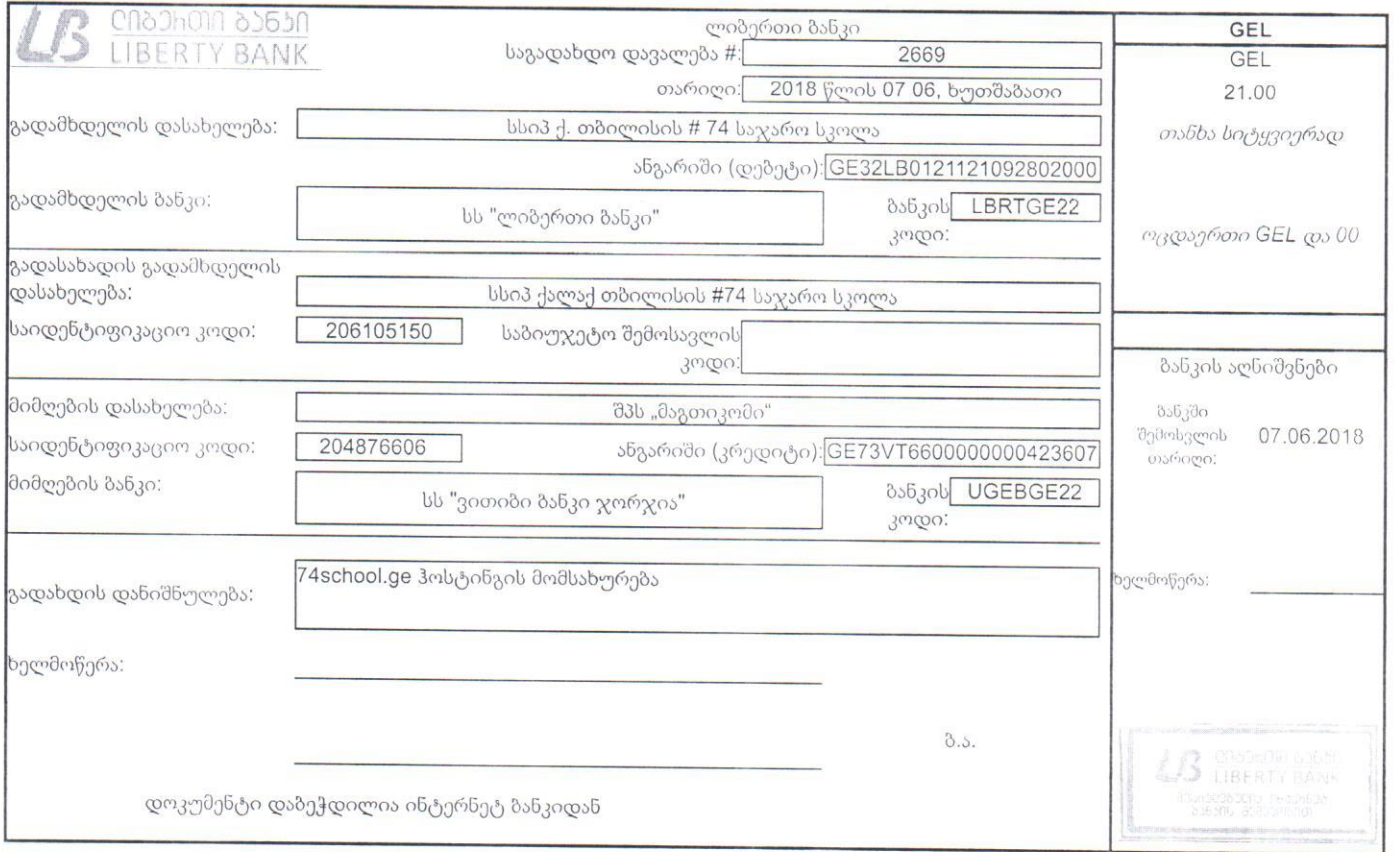 ლიბერთი ბანკი
LIBERTY BANK
ლიბერთი ბანკი
საგადახდო დავალება #: 2669
თარიღი: 2018 წლის 07 06, ხუთშაბათი
გადამხდელის დასახელება: სსიპ ქ. თბილისის # 74 საჯარო სკოლა
ანგარიში (დებეტი): GE32LB0121121092802000
გადამხდელის ბანკი: სს "ლიბერთი ბანკი" ბანკის კოდი: LBRTGE22
გადასახადის გადამხდელის
დასახელება: სსიპ ქალაქ თბილისის #74 საჯარო სკოლა
საიდენტიფიკაციო კოდი: 206105150 საბიუჯეტო შემოსავლის
კოდი:
მიმღების დასახელება: შპს „მაგთიკომი“
საიდენტიფიკაციო კოდი: 204876606 ანგარიში (კრედიტი): GE73VT6600000000423607
მიმღების ბანკი: სს "ვითიბი ბანკი ჯორჯია" ბანკის კოდი: UGEBGE22
გადახდის დანიშნულება: 74school.ge ჰოსტინგის მომსახურება
ხელმოწერა:
ბ.ა.
დოკუმენტი დაბეჭდილია ინტერნეტ ბანკიდან
GEL
GEL
21.00
თანხა სიტყვიერად
ოცდაერთი GEL და 00
ბანკის აღნიშვნები
ბანკში
შემოსვლის 07.06.2018
თარიღი:
ხელმოწერა:
ლიბერთი ბანკი
LIBERTY BANK